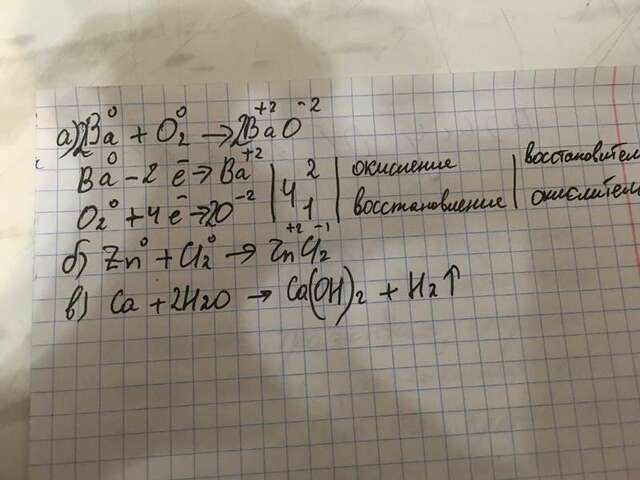 а) 2Ba⁰ + O₂⁰ → 2Ba⁺²O⁻²
Ba⁰ - 2ē → Ba⁺² | 4 | 2 | окисление | восстановител
O₂⁰ + 4ē → 2O⁻² | 1 | восстановление | окислител
б) Zn⁰ + Cl₂⁰ → Zn⁺²Cl₂⁻¹
в) Ca + 2H2O → Ca(OH)₂ + H₂↑